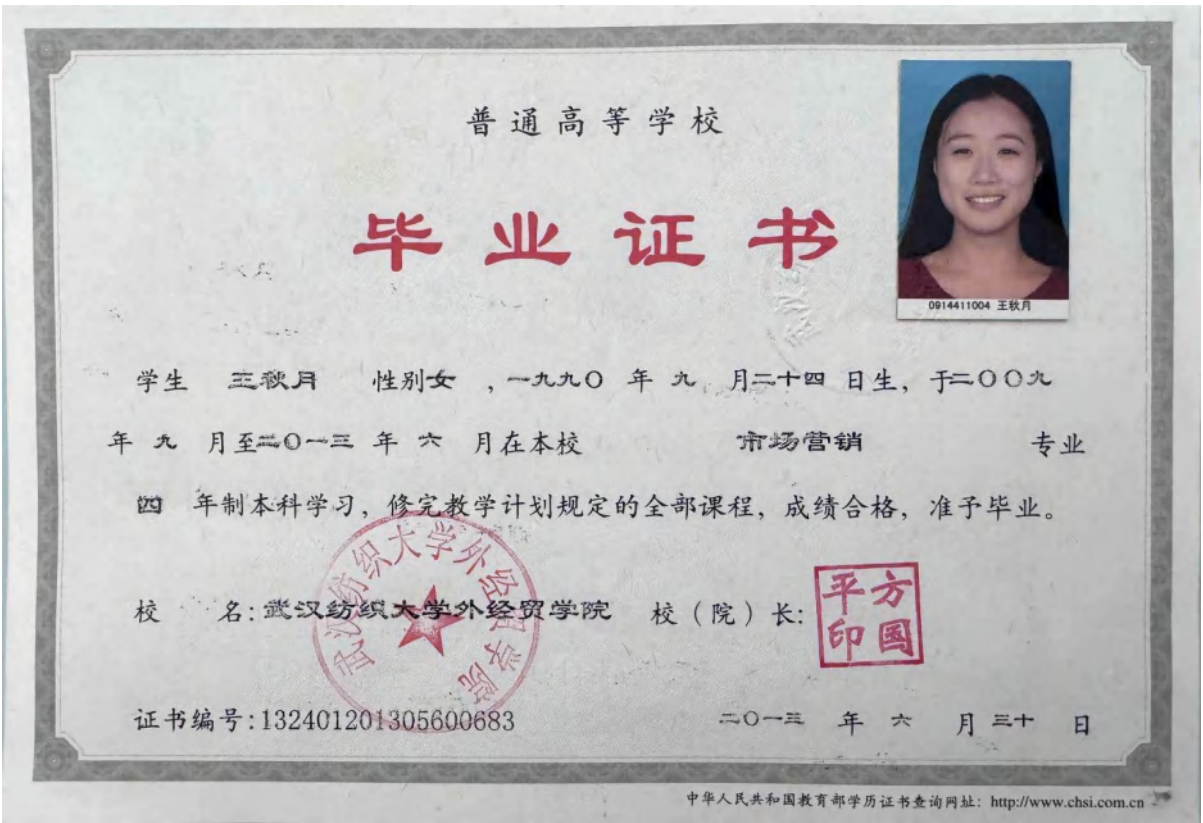 普通高等学校
毕业证书
0914411004 王秋月
学生 王秋月 性别女 ，一九九〇 年 九 月二十四 日生，于二〇〇九
年 九 月至二〇一三 年 六 月在本校 市场营销 专业
四 年制本科学习，修完教学计划规定的全部课程，成绩合格，准予毕业。
武汉纺织大学外经贸学院
校 名：武汉纺织大学外经贸学院 校（院）长：
方国平印
证书编号：132401201305600683 二〇一三 年 六 月三十 日
中华人民共和国教育部学历证书查询网址：http://www.chsi.com.cn